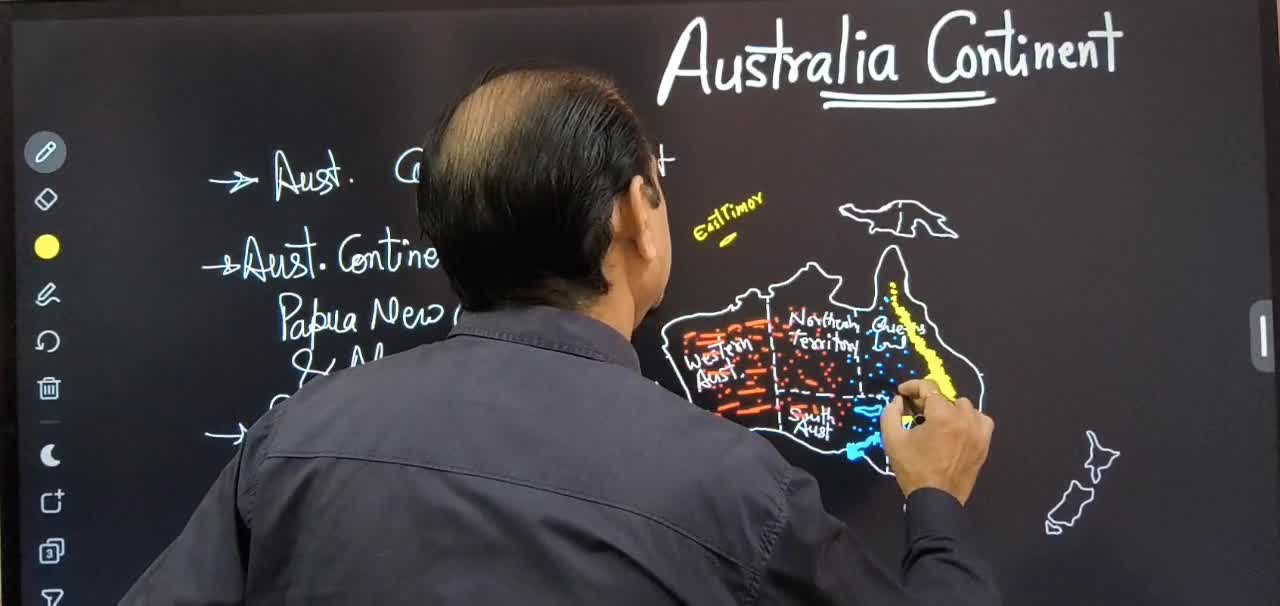 Australia Continent
→ Aust.
→ Aust. Contine
Papua New
&
East Timor
Western
Aust.
Northern
Territory
South
Aust
3